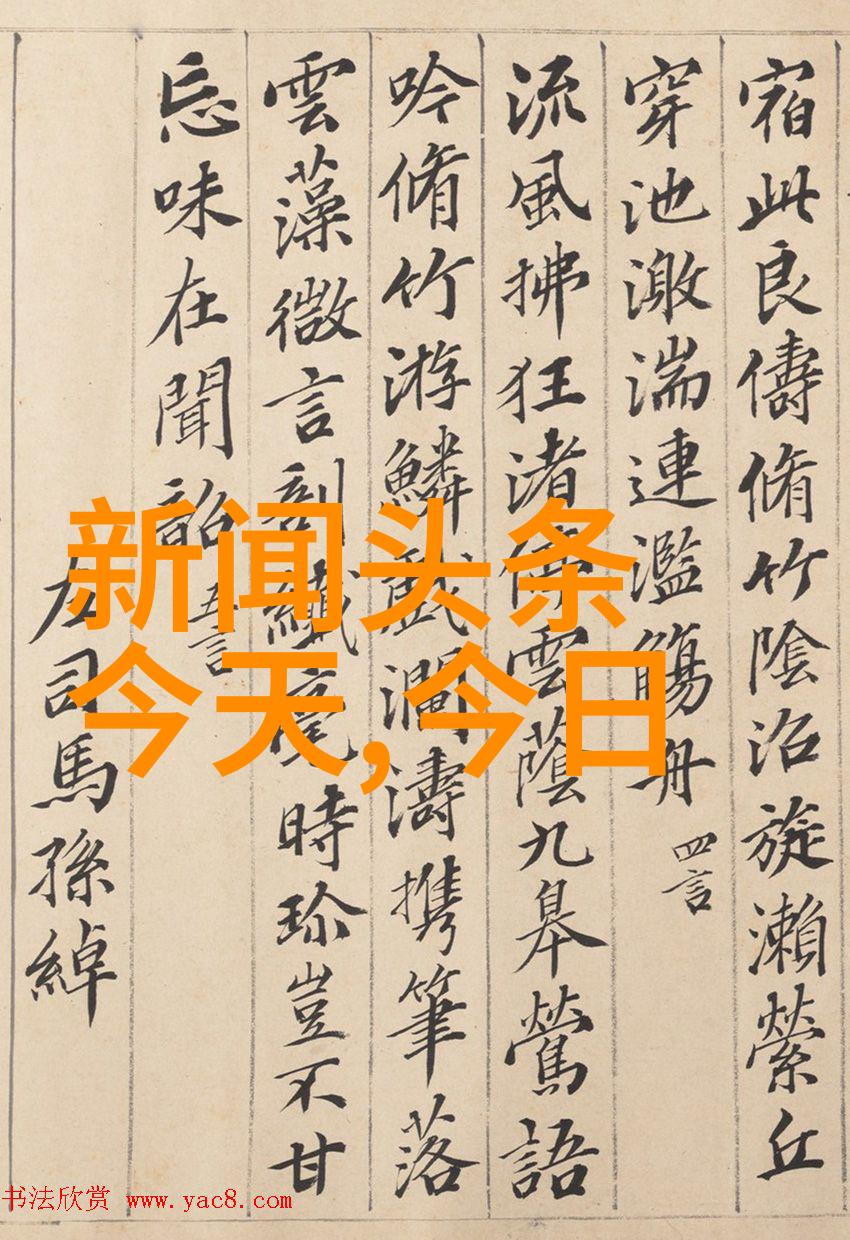 宿此良儔脩竹陰沼旋瀨縈丘
穿池激湍連濫觴舟 四言
流風拂狂渚停雲蔭九皋鶯語
吟脩竹游鱗戲瀾濤携筆落
雲藻微言剖纖毫時珎豈不甘
忘味在聞韶 五言
左司馬孫綽
新闻头条
今天,今日
书法欣赏 www.yac8.com